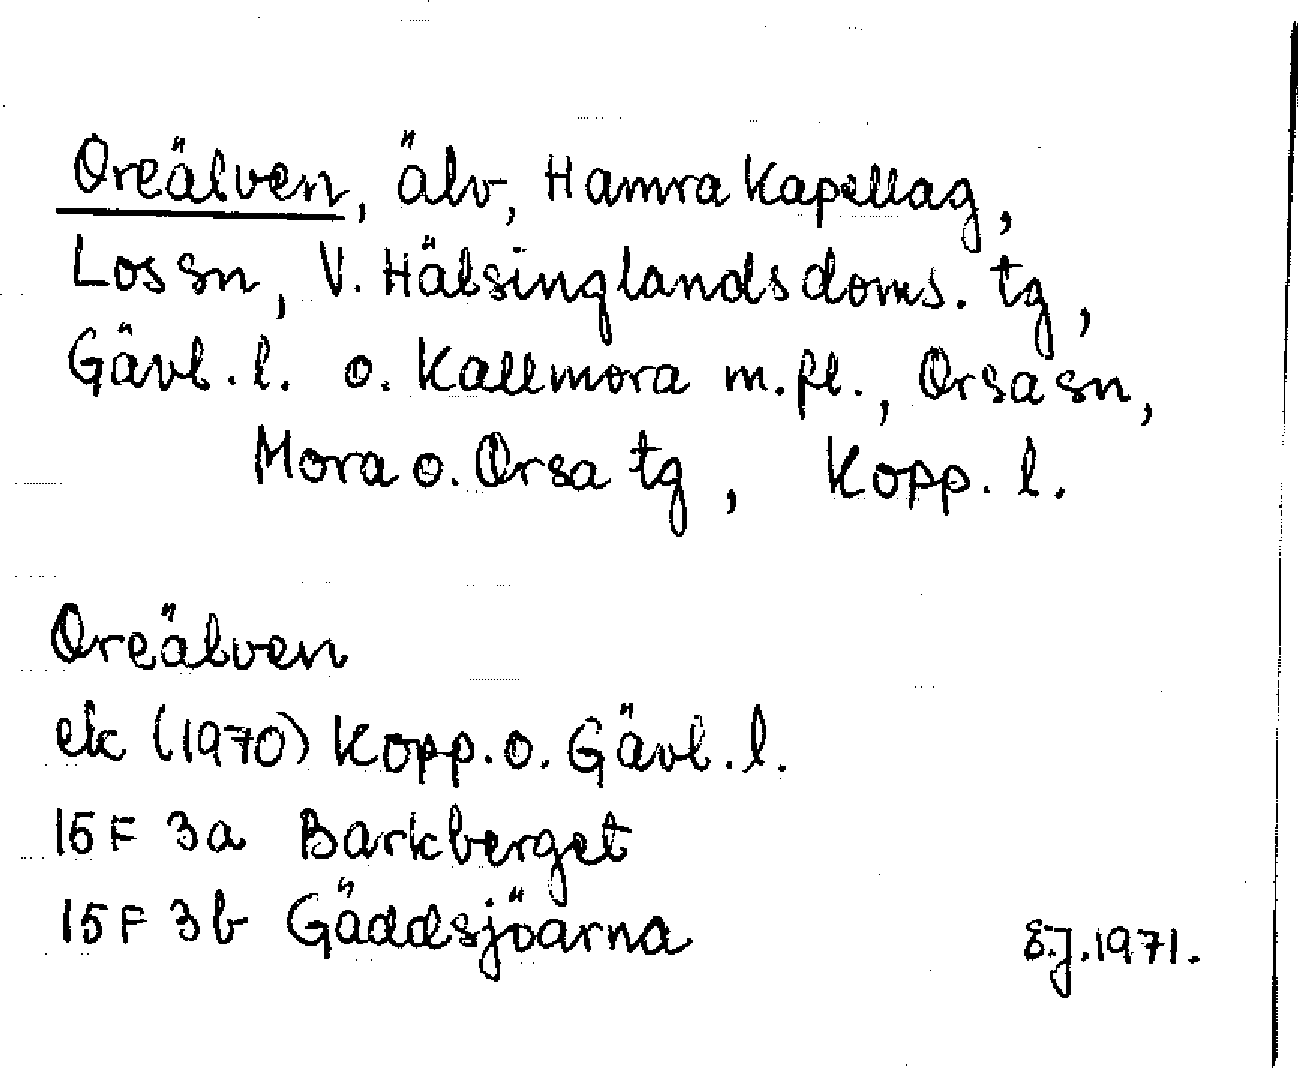 Oreälven, älv, Hamra Kapellag,
Los sn, V. Hälsinglands doms. tg,
Gävl. l. o. Kallmora m.fl., Orsa sn,
Mora o. Orsa tg, Kopp. l.
Oreälven
ek (1970) Kopp. o. Gävl. l.
15 F 3a Barkberget
15 F 3b Gäddsjöarna
E.J. 1971.